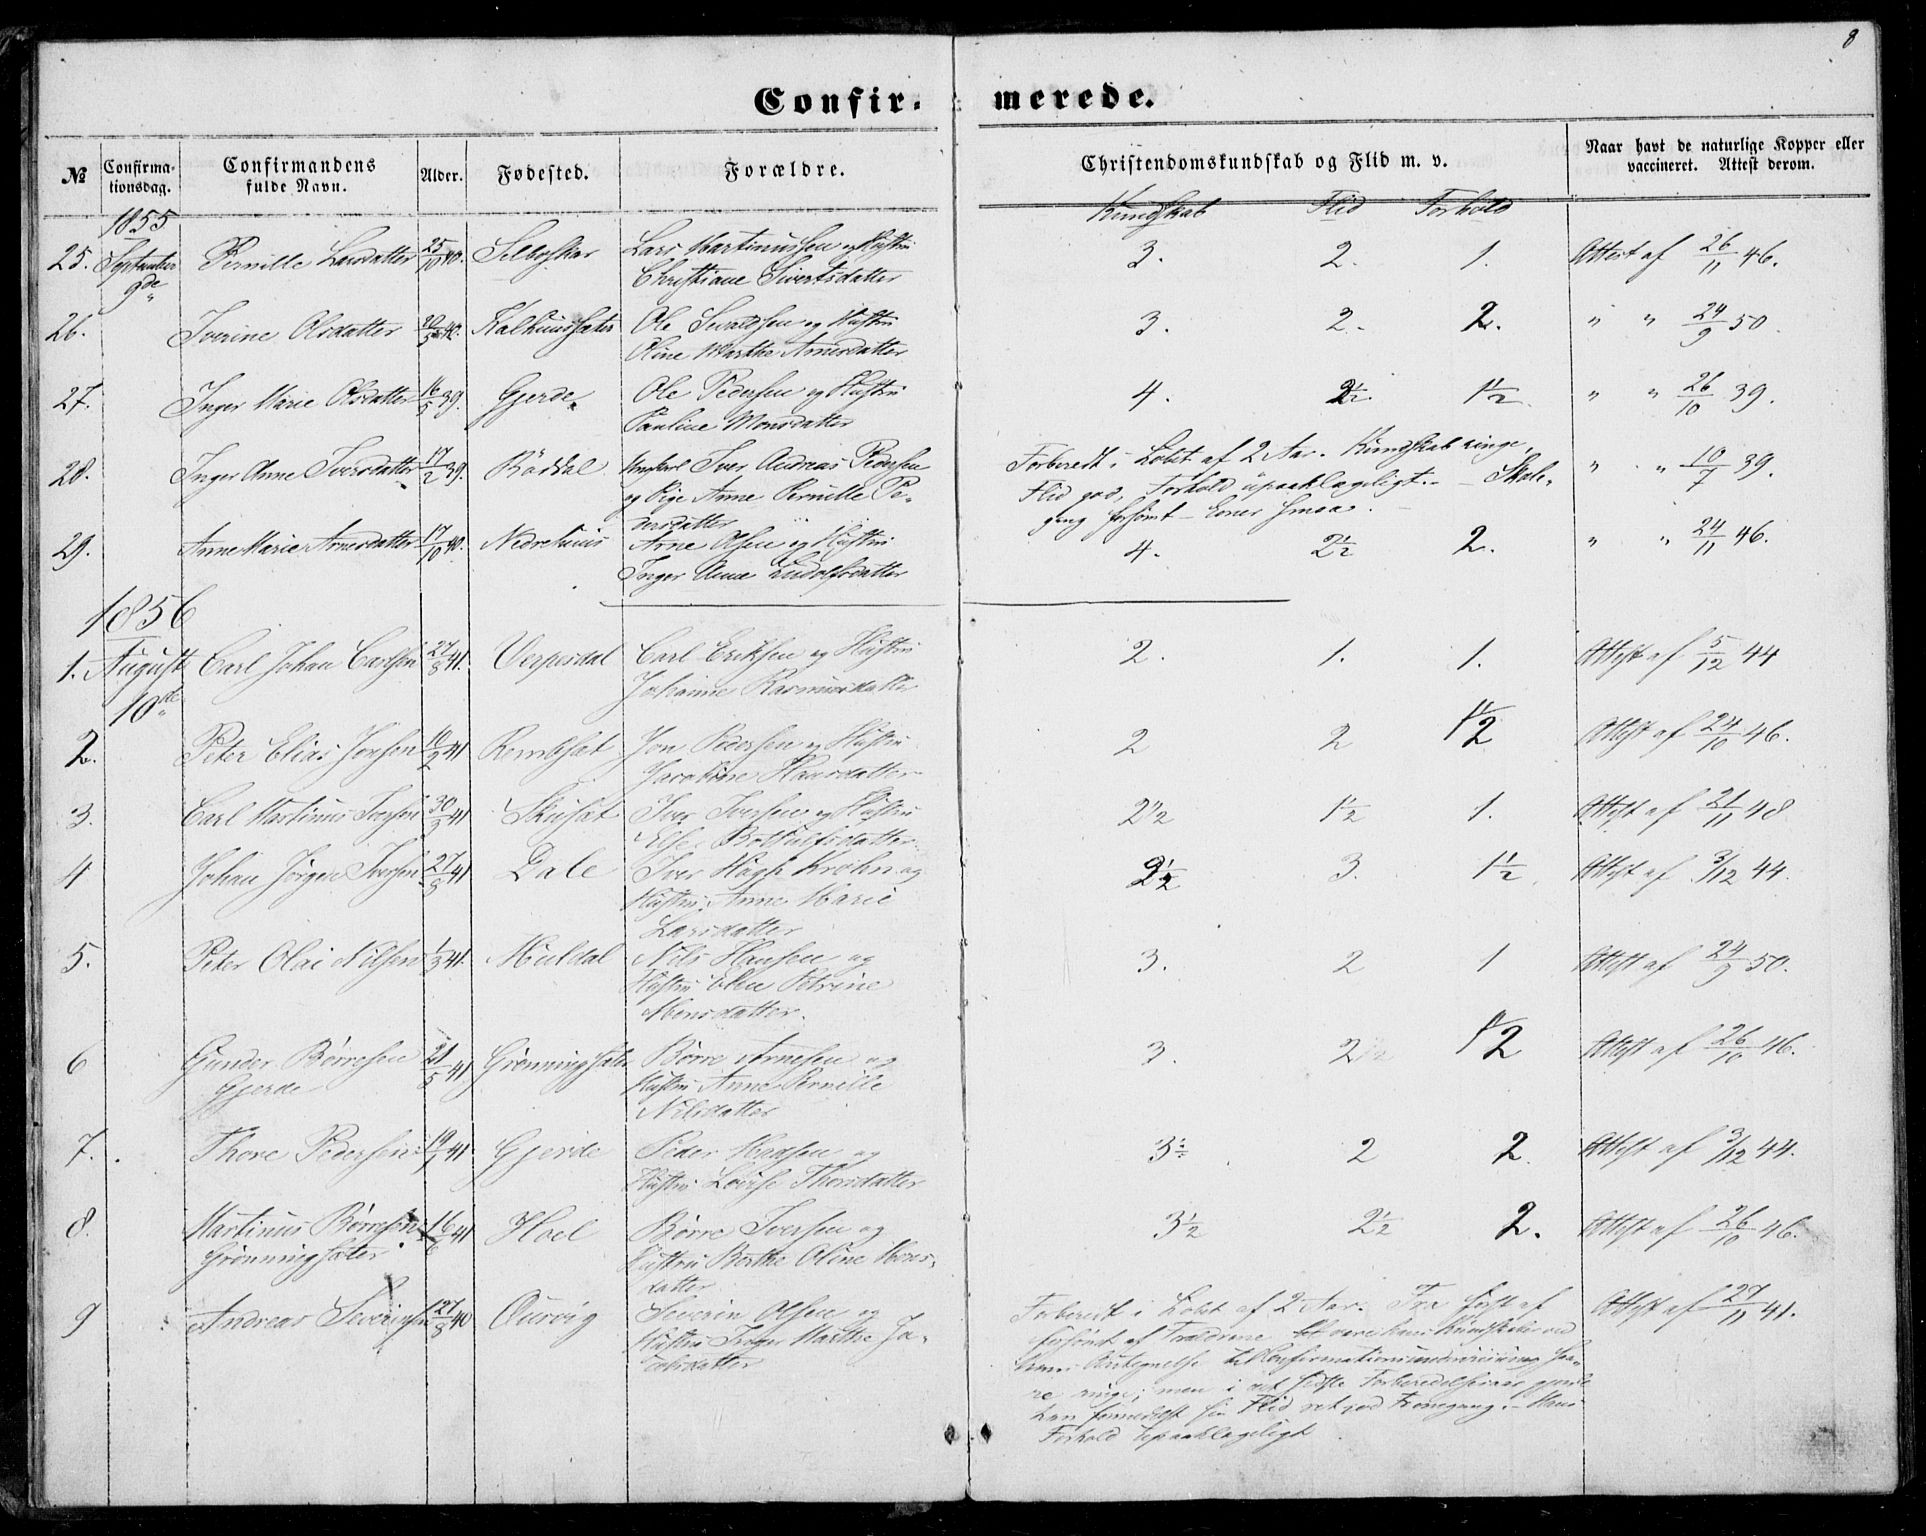 8
Confir- merede.
№ Confirma-tionsdag. Confirmandens fulde Navn. Alder. Fødested. Forældre. Christendomskundskab og Flid m. v. Naar havt de naturlige Kopper eller vaccineret. Attest derom.
Kundskab Flid Forhold
1855
25. September 9de Pernille Larsdatter 25/10 40. Selboskar Lars Martinussen og Hustru 3. 2. 1. Attest af 26/11 46.
Christiane Sivertsdatter
26. Iverine Olsdatter 20/5 40. Kalhussæter Ole Sivaldsen og Hustru 3. 2. 2. " " 24/9 50.
Oline Marthe Arnesdatter
27. Inger Marie Olsdatter 16/5 39. Gjerde Ole Pedersen og Hustru 4. 2½. 1½. " " 26/10 39.
Pauline Monsdatter
28. Inger Anne Iversdatter 17/2 39. Røddal Ungkarl Iver Andreas Pedersen Forberedt i Løbet af 2 Aar. Kundskab ringe, " " 10/7 39.
og Pige Anne Pernille Pe- Flid god, Forhold upaaklageligt. - Skole-
dersdatter gang forsømt - Evner smaa.
29. Anne Marie Arnesdatter 17/10 40. Nedrehuus Arne Olsen og Hustru 4. 2½ 2. " " 24/11 46.
Inger Anne Ludolfsdatter
1856
1. August 10de Carl Johan Carlsen 27/8 41. Verpesdal Carl Eriksen og Hustru 2. 1. 1. Attest af 5/12 44
Johanne Rasmusdatter
2. Peter Elias Jonsen 10/2 41 Remesæt Jon Pedersen og Hustru 2 2 1½ Attest af 24/10 46.
Jacobine Hansdatter
3. Carl Martinus Iversen 30/3 41 Skusæt Iver Iversen og Hustru 2½ 1½ 1. Attest af 21/11 48
Else Bothulfsdatter
4 Johan Jørgen Iversen 27/3 41 Dale Iver Høgh Krohn og 2½ 3. 1½ Attest af 3/12 44.
Hustru Anne Marie
Larsdatter
5. Peter Olai Nilsen 1/3 41. Muldal Nils Hansen og 3. 2 1 Attest af 24/9 50.
Hustru Elen Petrine
Monsdatter.
6 Gunder Børresen 21/5 41 Grønningsæter Børre Arnesen og 3. 2½ 1½ Attest af 26/10 46.
Gjerde Hustru Anne Pernille
Nilsdatter
7. Thore Pedersen 19/1 41 Gjerde Peder Madsen og 3½ 2 2. Attest af 3/12 44.
Hustru Lovise Thorsdatter
8. Martinus Børresen 16/6 41 Hoel Børre Iversen og 3½ 2½ 2. Attest af 26/10 46.
Grønningsæter Hustru Berthe Oline Mons-
datter
9 Andreas Severinsen 27/8 40 Ourvig Severin Olsen og Forberedt i Løbet af 2 Aar. Fra først af Attest af 27/11 41.
Hustru Inger Marthe Ja- forsømt af Forældrene vare hans Kundskaber ved
cobsdatter hans Antegnelse til Confirmationsundervisning saa-
re ringe; men i det sidste Forberedelsesaar gjorde
han formedelst sin Flid ret god Fremgang. - Hans
Forhold upaaklageligt.